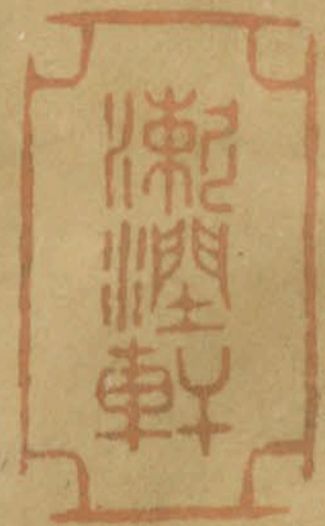 漱潤軒